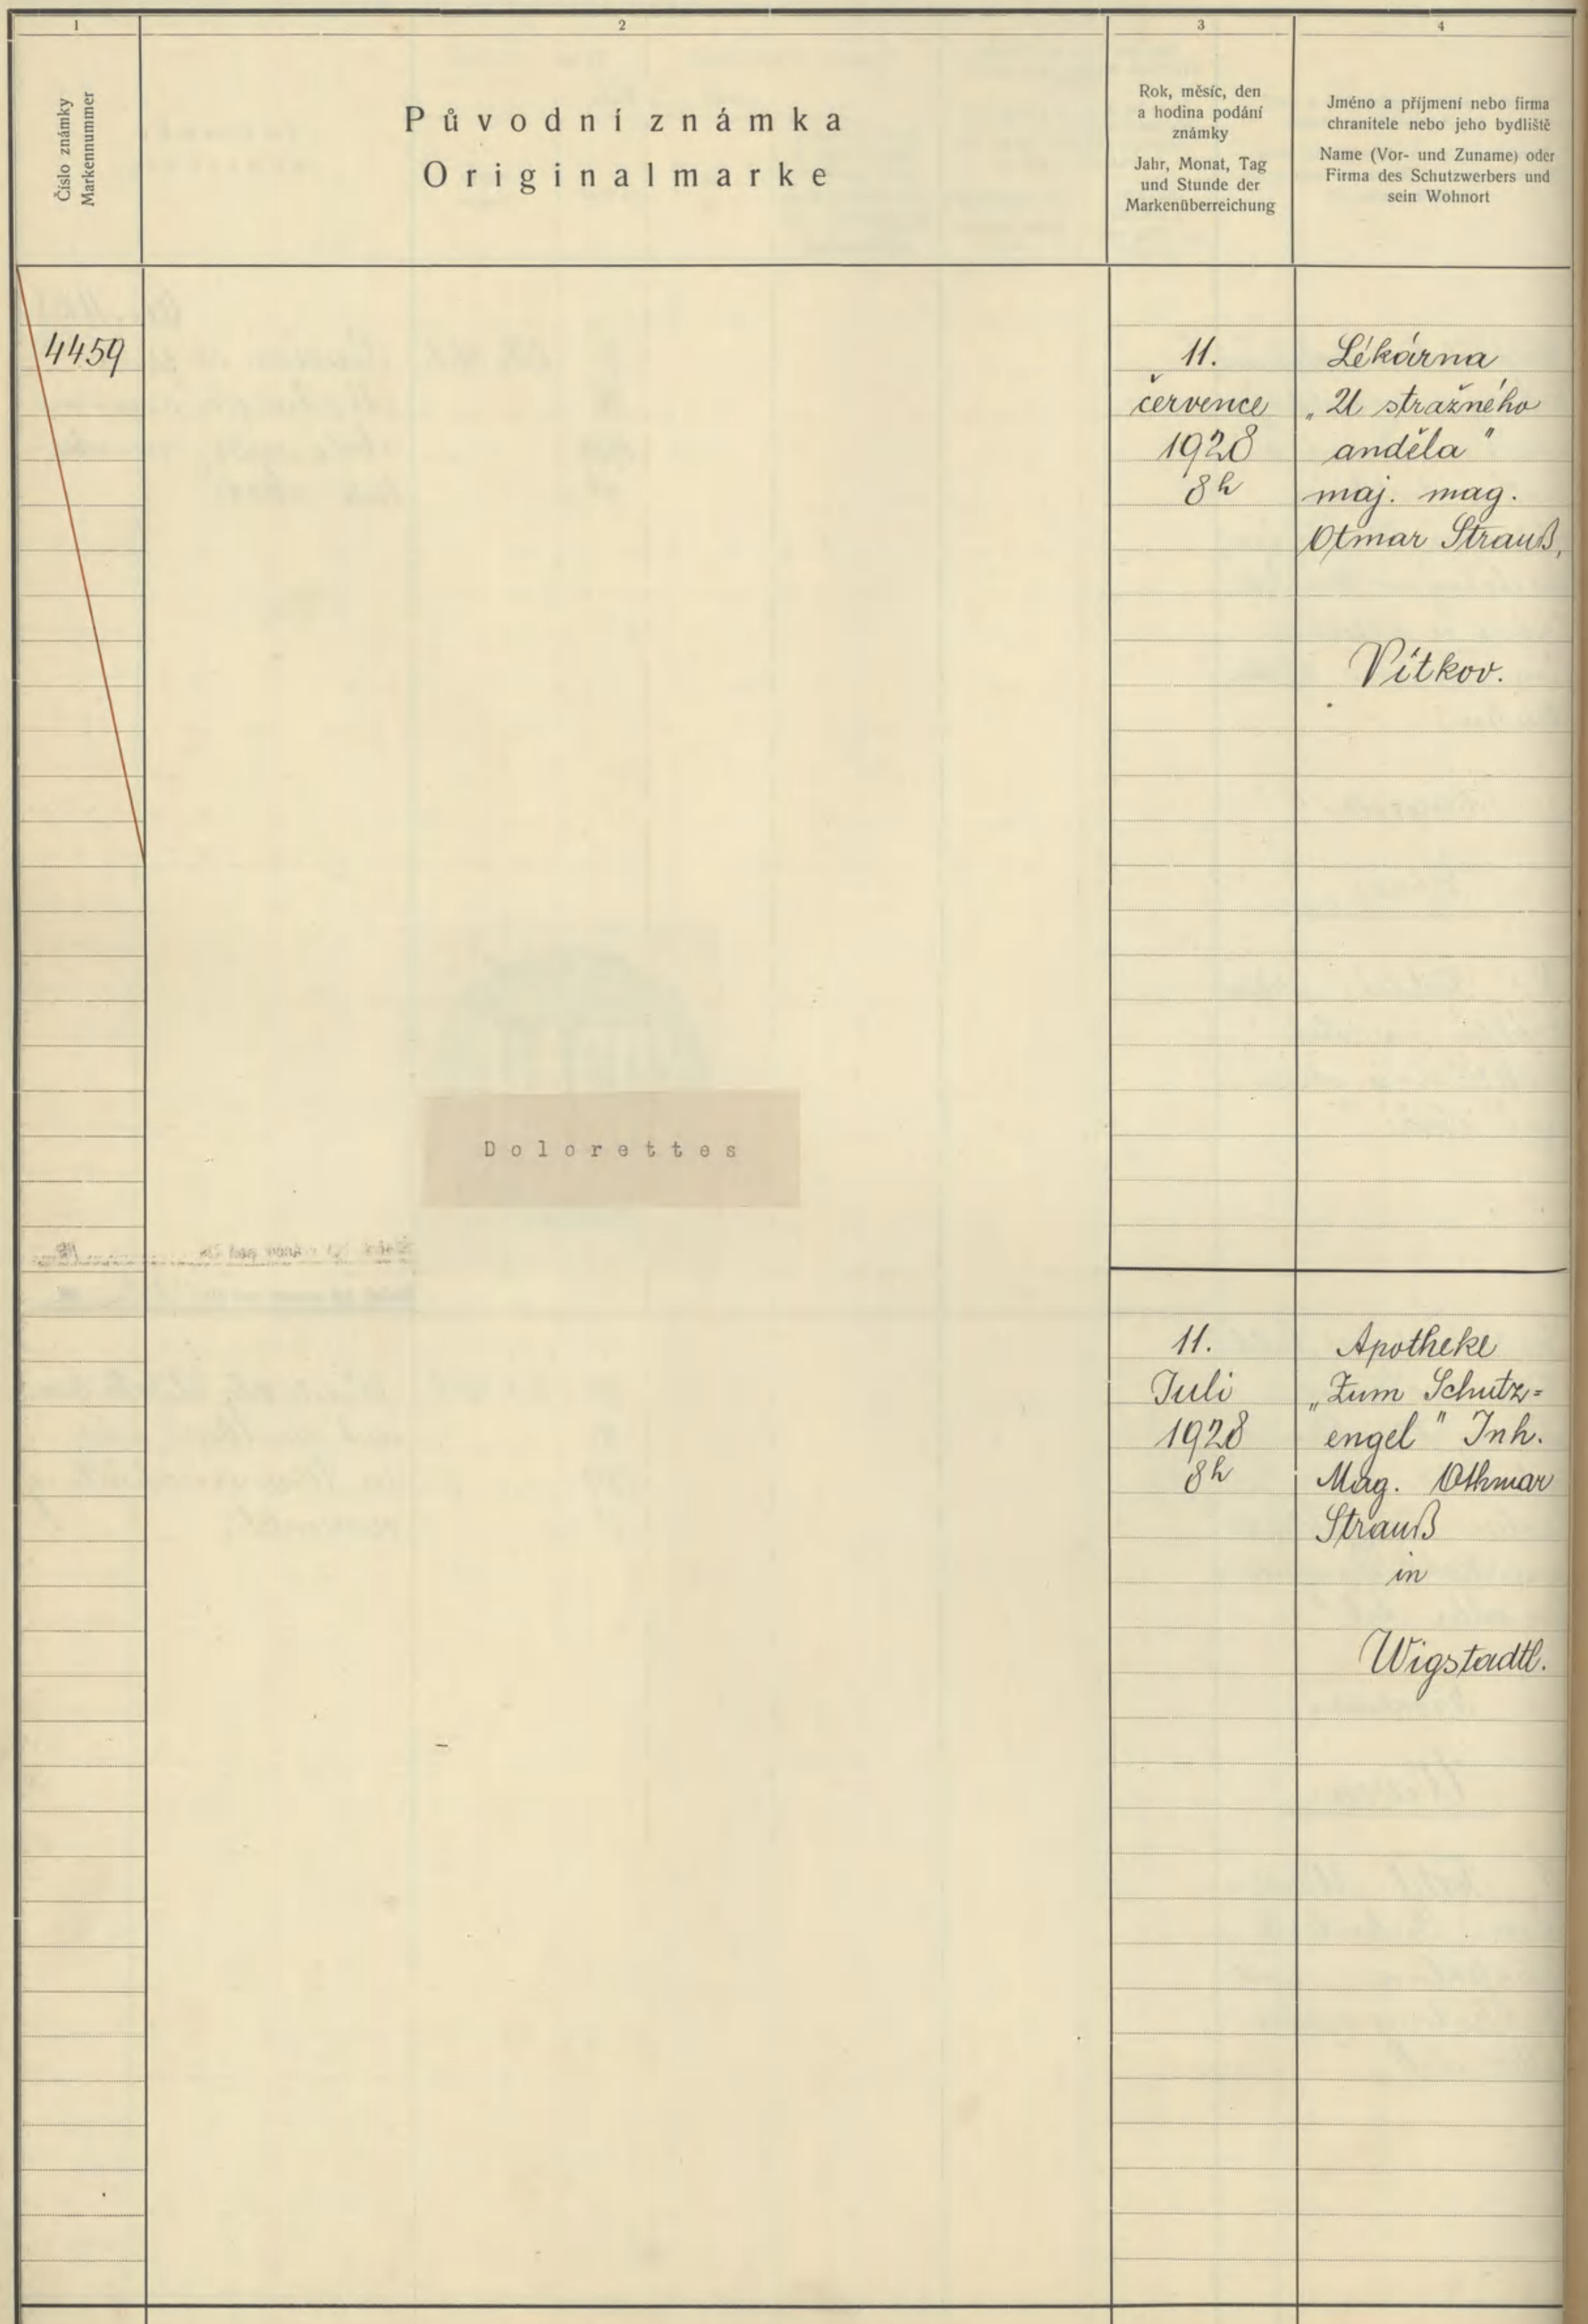 1
2
3
4
Číslo známky
Markennummer
Původní známka
Originalmarke
Rok, měsíc, den
a hodina podání
známky
Jahr, Monat, Tag
und Stunde der
Markenüberreichung
Jméno a příjmení nebo firma
chranitele nebo jeho bydliště
Name (Vor- und Zuname) oder
Firma des Schutzwerbers und
sein Wohnort
4459
11.
července
1928
8h
Lékárna
„U strážného
anděla"
maj. mag.
Otmar Strauß,
Vítkov.
Dolorettes
11.
Juli
1928
8h
Apotheke
„Zum Schutz=
engel" Inh.
Mag. Othmar
Strauß
in
Wigstadtl.